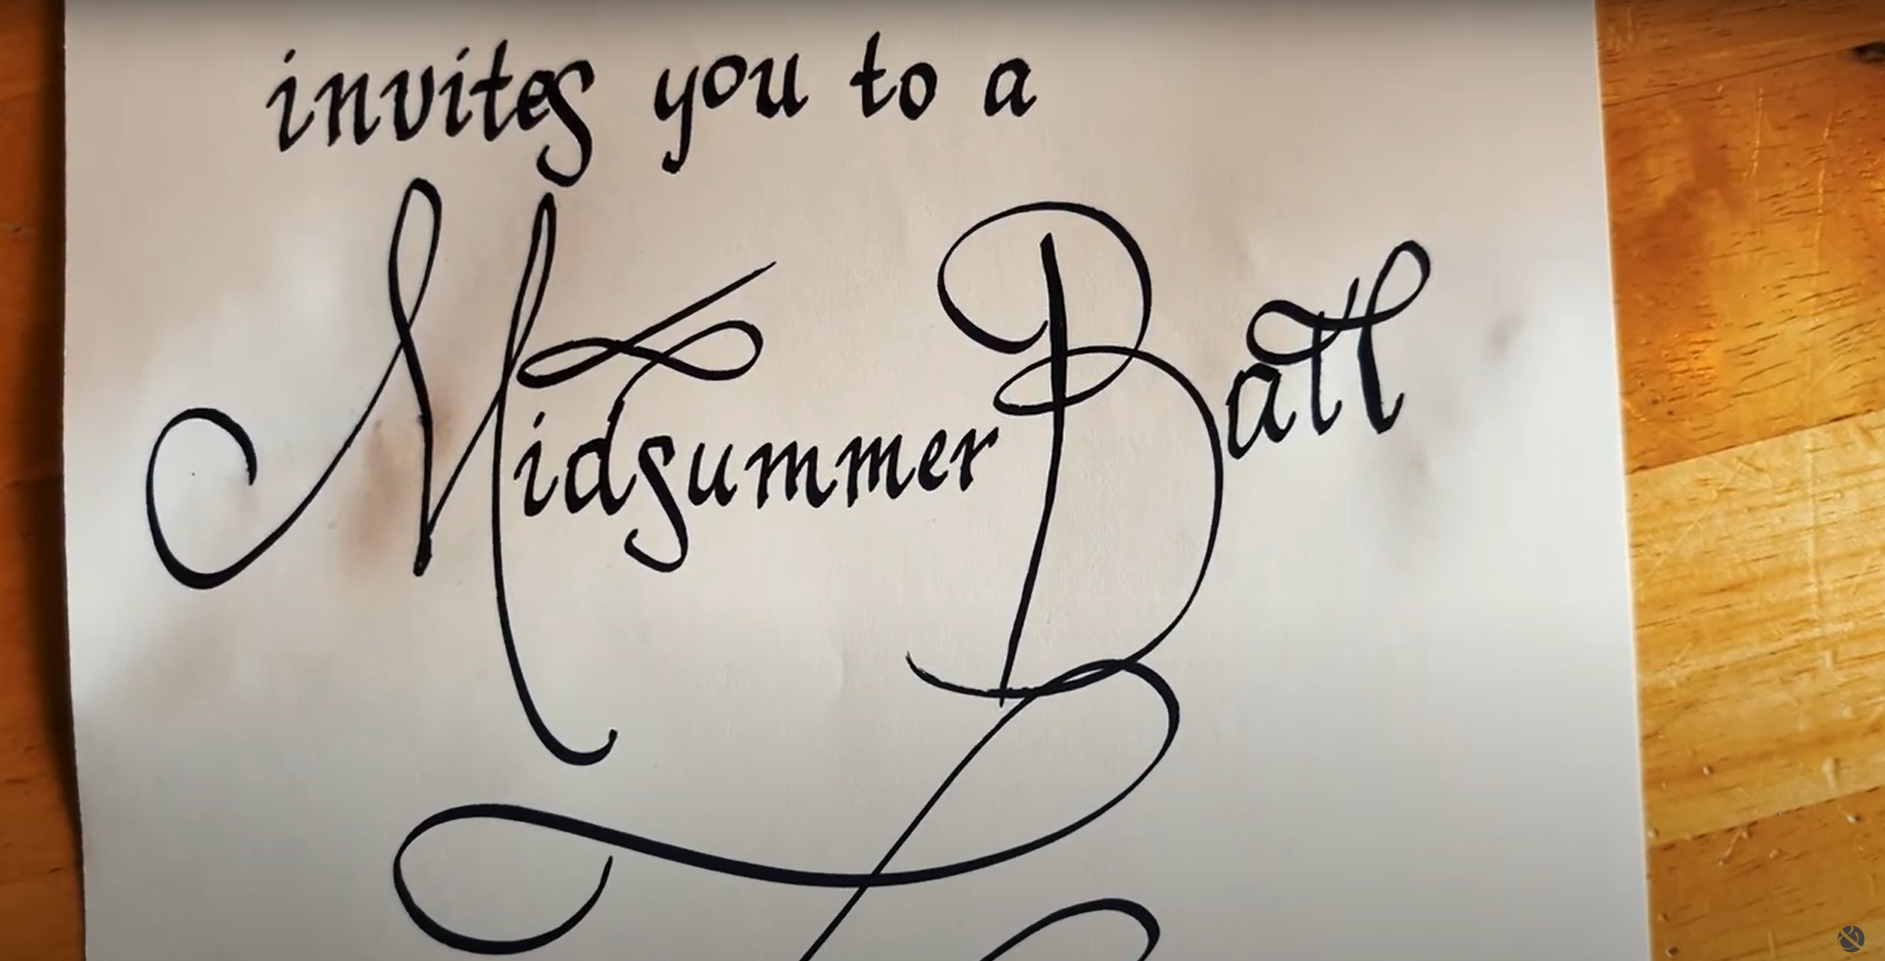 invites you to a
Midsummer Ball